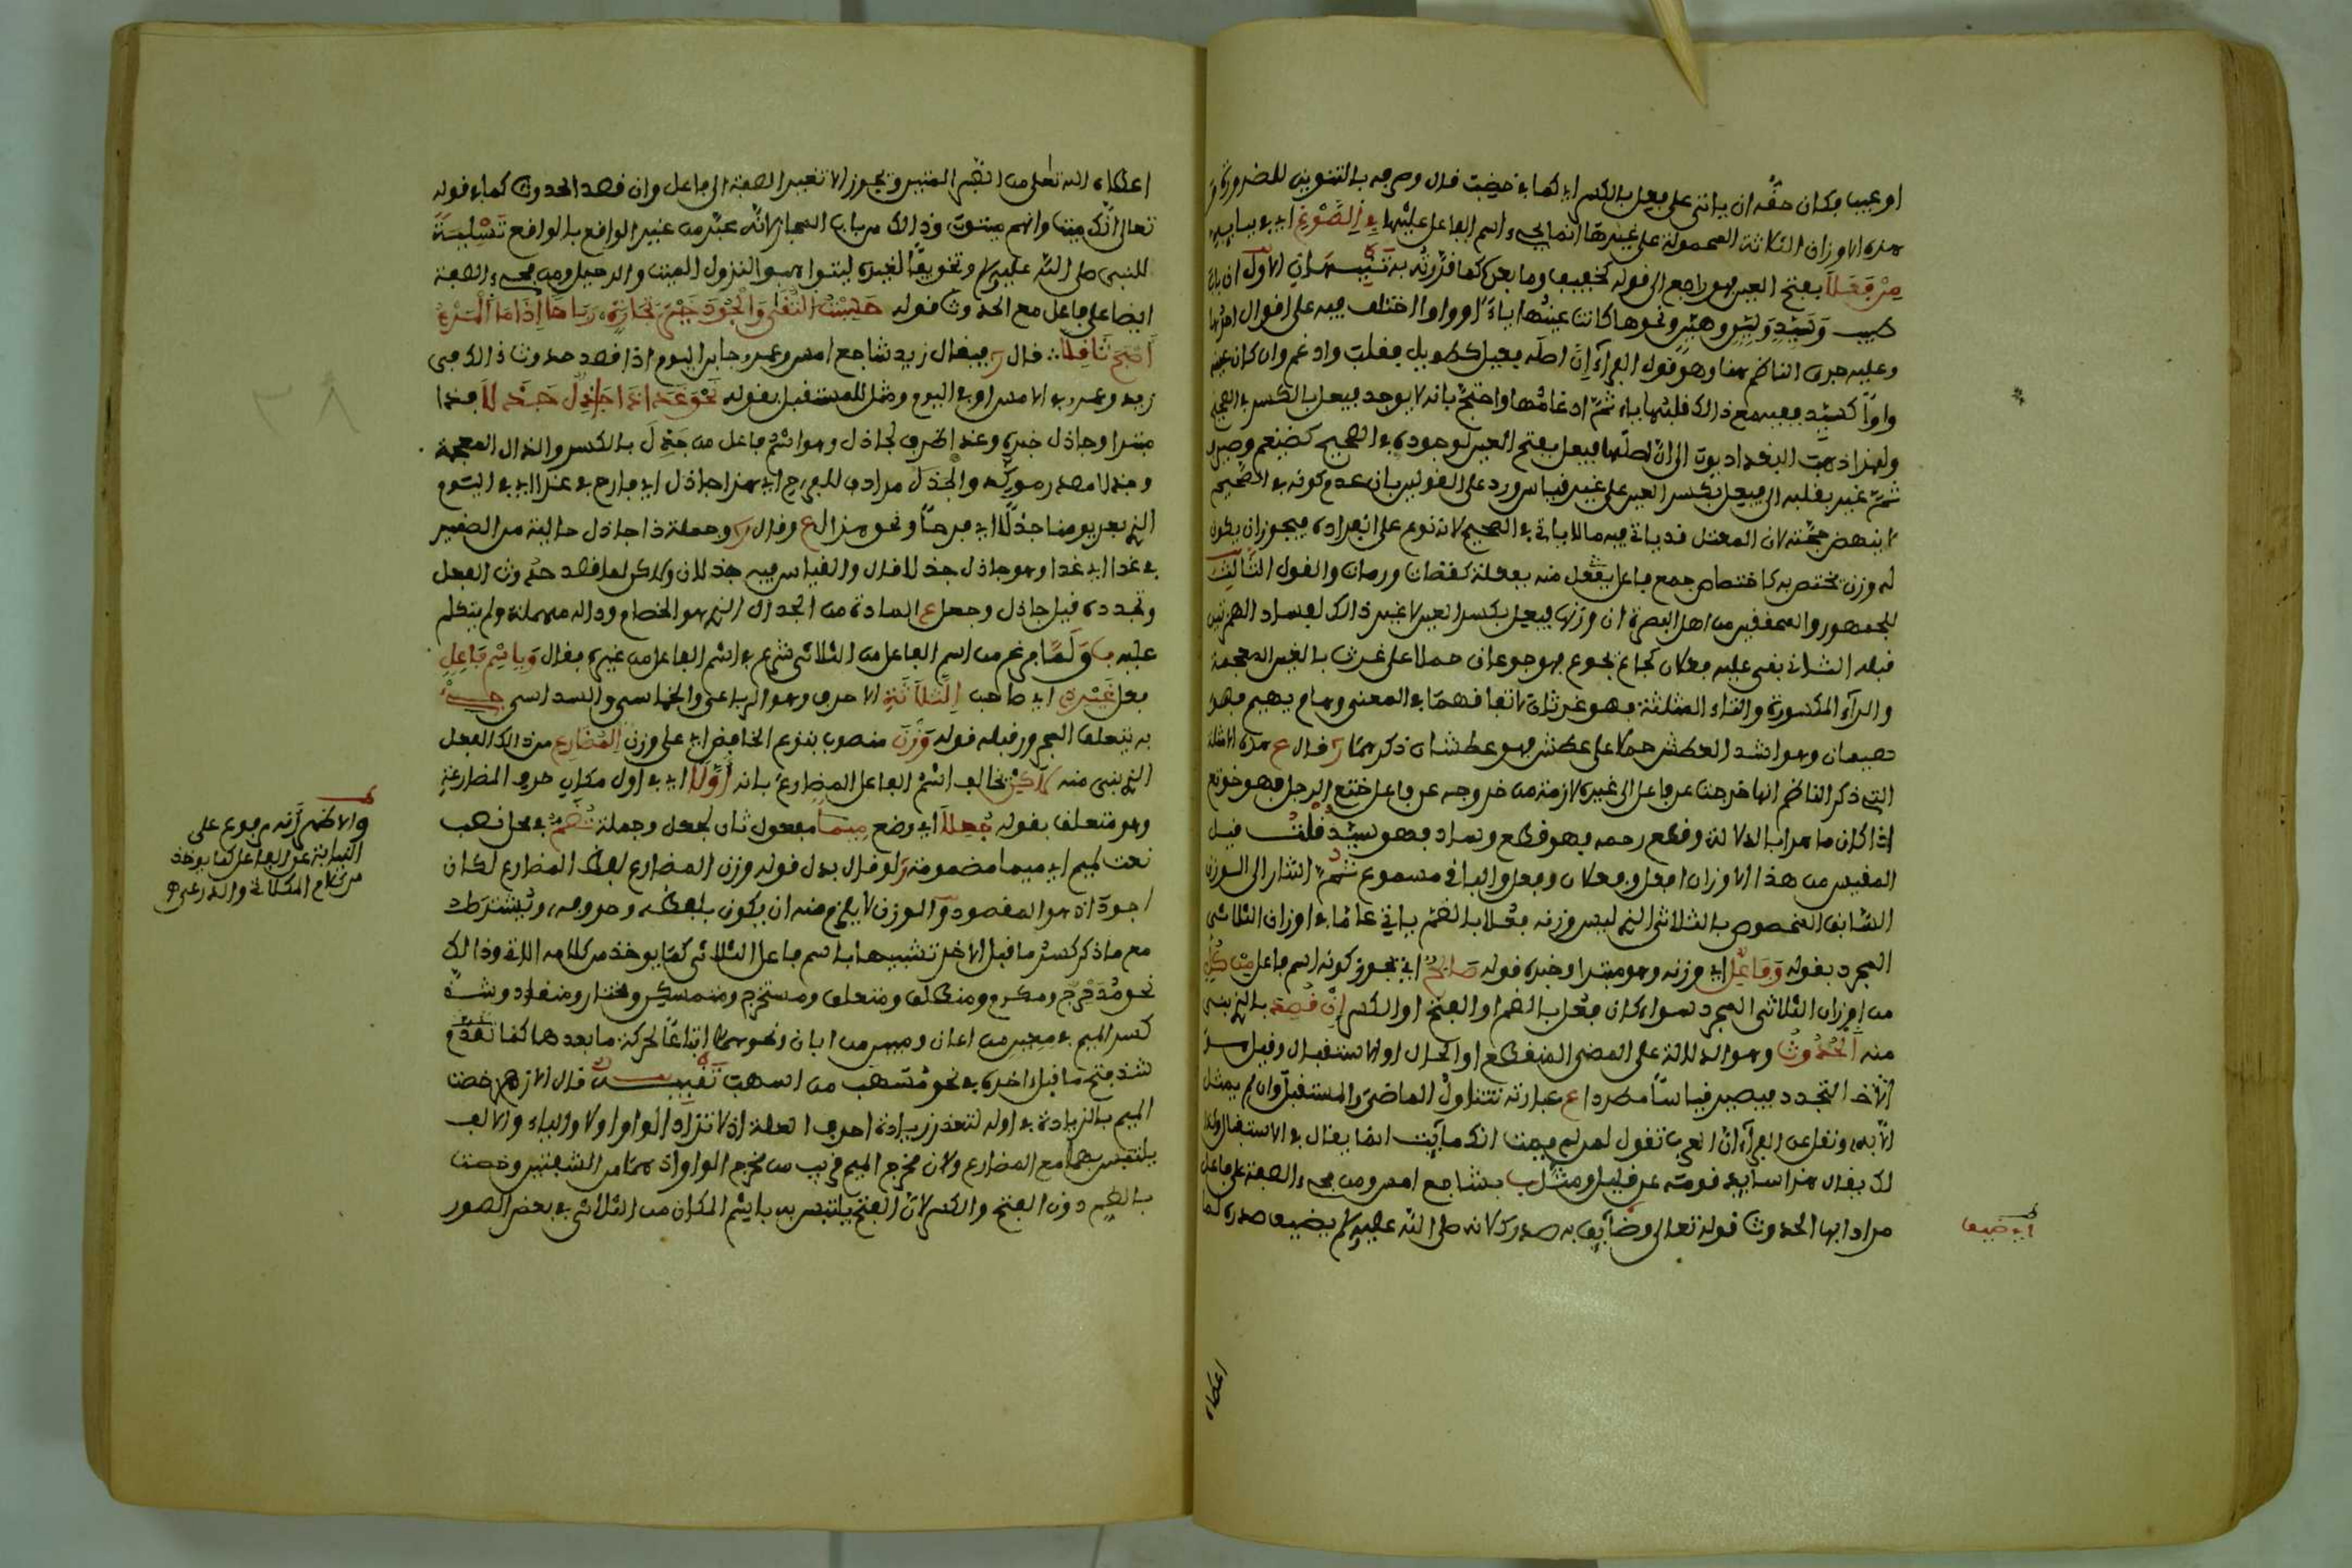 او عيب فكان حقه ان ياتي على فعل بالكسر اي كما في خضب قال وصرفه بالتنوين للضرورة
هذه الاوزان الثلاثة المحمولة على غيرها انما يجيء اسم الفاعل عليها في الصوغ اي في بنايه
من فعلا بفتح العين فهو راجع الى قوله كخفيف وما بعده كما قررته به تنبيهان الاول ان باب
طيب وسيد ولين وهين ونحوها كانت عينها ياء او واوا اختلف فيه على اقوال احدها
وعليه جرى الناظم هنا وهو قول الفراء ان اصله فعيل كطويل فقلبت وادغم وان كان عينه
واوا كسيد ففيه مع ذالك قلبها ياء ثم ادغامها واحتج بانه لا يوجد فيعل بالكسر في الصحيح
ولهذا ذهب البغداديون الى ان اصلها فيعل بفتح العين لوجوده في الصحيح كضيغم وصيرف
ثم غير بقلبه الى فيعل بكسر العين على غير قياس ورد على القولين بان عدم كونه في الصحيح
لا ينهض حجة لان المعتل قد ياتي فيه ما لا ياتي في الصحيح لانه نوع على انفراده فيجوز ان يكون
له وزن يختص به كاختصاص جمع فاعل يفعل منه بفعلة كقضاة ورماة والقول الثالث
للجمهور والمحققين من اهل البصرة ان وزنه فيعل بكسر العين لا غير ذالك لفساد الحمزتين
قبله الثاني بقي عليه فعلان كجاع يجوع فهو جوعان حملا على غرث بالغين المعجمة
والراء المكسورة والثاء المثلثة فهو غرثان لاتفاقهما في المعنى وهام يهيم فهو
هيمان وهو اشد العطش حملا على عطش فهو عطشان ذكرهما ر قال ع هذه الامثلة
التي ذكر الناظم انها خرجت عن فاعل الى غيره لازمة من خروجه عن فاعل ختع الرجل فهو خوتع
اذا كان ماهرا بالدلالة وقطع رحمه فهو قطع وساد فهو سيد قلت قيل
المقيس من هذا الاوزان افعل وفعلان وفعل والباقي مسموع ثم اشار الى الوزن
السابق المخصوص بالثلاثي الذي ليس وزنه فعلا بالضم ياتي عاما في اوزان الثلاثي
المجرد بقوله وفاعل اي وزنه وهو مبتدا وخبره قوله صالح اي يجوز كونه اسم فاعل من كل
من اوزان الثلاثي المجرد سواء كان فعل بالضم او الفتح او الكسر ان قصد بالذي بني
منه الحدوث وهو الدلالة على المضي المنقطع او الحال او الاستقبال وقيل هو
الاخذ التجدد فيصير قياسا مطردا ع عبارته تتناول الماضي والمستقبل وان لم يمثل
الا به ونقل عن الفراء ان العرب تقول لمن لم يمت انك مايت انما يقال في الاستقبال ولا
لك يقال هذا سايد قومه عن قليل ومثل ب بشاجع امس ومن مجيء الصفة على فاعل
مرادا بها الحدوث قوله تعالى وضايق به صدرك لانه صلى الله عليه وسلم يضيق صدره لما
اي ضيق
اعطاه
اعطاه الله تعالى من الشيم المتين ويجوز الا تغير الصفة الى فاعل وان قصد الحدوث كما في قوله
تعالى انك ميت وانهم ميتون وذالك من باب المجاز لانه عبر عن غير الواقع بالواقع تسلية
للنبي صلى الله عليه وسلم وتخويفا لغيره ليتوا هبوا لنزول الموت والرحيل ومن مجيء الصفة
ايضا على فاعل مع الحدوث قوله حسبت التقى والجود خير تجارة رباحا اذا ما المرء
اصبح ثاقلا قال ر فيقال زيد شاجع امس وعمرو جابن اليوم اذا قصد حدوث ذالك من
زيد وعمرو في الامس او في اليوم ومثل للمستقبل بقوله نحو غدا ذا جاذل جذلا فهذا
مبتدا وجاذل خبره وغدا ظرف لجاذل وهو اسم فاعل من جذل بالكسر والذال المعجمة
وجذلا مصدر مؤكد والجذل مرادف للفرح اي هذا جاذل اي فارح في غد اي في اليوم
الذي بعد يومنا جذلا اي فرحا ونحو هذا لع وقال ر وجملة ذا جاذل حالية من الضمير
في غدا اي غدا وهو جاذل جذلا قال والقياس فيه جذلان ولاكن لما قصد حدوث الفعل
وتجدده قيل جاذل وجعل ع المادة من الجدال الذي هو الخصام وداله مهملة ولم يتكلم
عليه ب ولما فرغ من اسم الفاعل من الثلاثي شرع في اسم الفاعل من غيره فقال وباسم فاعل
فعل غير اي صاحب الثلاثة الاحرف وهو الرباعي والخماسي والسداسي جيء
به يتعلق المجرور قبله قوله وزن منصوب بنزع الخافض اي على وزن المضارع من ذالك الفعل
الذي بني منه لاكن يخالف اسم الفاعل المضارع بانه اولا اي في اول مكان حرف المضارعة
وهو متعلق بقوله جعلا اي وضع ميما مفعول ثان لجعل وجملة تضم في محل نصب
نعت لميم اي ميما مضمومة ر لو قال بدل قوله وزن المضارع لفظ المضارع لكان
اجود اذ هو المقصود والوزن لا يلزم منه ان يكون بلفظه وحروفه ويشترط
مع ما ذكر كسر ما قبل الاخر تشبيها باسم فاعل الثلاثي كما يوخذ من كلامه اللاة وذالك
نحو مدحرج ومكرم ومنطلق ومتعلق ومستخرج ومتمسكن ومختار ومنقاد وشذ
كسر الميم في معين من اعان ومبين من ابان ونحوهما اتباعا لحركة ما بعدها كما تقدم
شذ فتح ما قبل اخره في نحو مسهب من اسهب تنبيهان قال الازهري خصت
الميم بالزيادة في اوله لتعذر زيادة احرف العلة اذ لا تزاد الواو اولا والياء والالف
يلتبس بهما مع المضارع ولان مخرج الميم قريب من مخرج الواو اذ هما من الشفتين وخصت
بالضم دون الفتح والكسر لان الفتح يلتبس به باسم المكان من الثلاثي في بعض الصور
والاظهر انه مرفوع على
النيابة عن الفاعل كما يوخذ
من كلام المكلاتي والدرعي اه